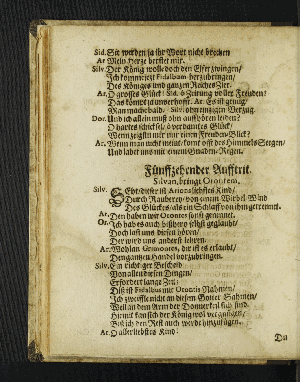 Sid. Sie werden ja ihr Wort nicht brechen
Ar. Mein Hertze berstet mir.
Silv. Der König wolle doch den Eifer zwingen/
Ich komme jetzt Fidalbum herzubringen/
Des Königes und gantzen Reiches Zier.
Ar. O grosses Glück! Sid. o Zeitung voller Freuden!
Das kömt ja unverhofft. Ar. Es ist genug/
Man mache bald. Silv. ohn einzigen Verzug.
Dor. Und ich allein muß ohn auffhören leiden?
O hartes schicksel, o verdamtes Glück/
Wenn zeigstu mir nur einen Freuden-Blick?
Ar. Wenn man nicht meint, komt offt des Himmels Seegen/
Und labet uns mit einem Gnaden-Regen.
Fünffzehender Aufftrit.
Silvan, bringt Orontem.
Silv. Seht/ dieser ist Arions liebstes Kind/
Durch Rauberey/ von einem Wirbel Wind
Des Glückes/ als ein Schlaff von ihm getrennet.
Ar. Den haben wir Orontes sonst genennet.
Or. Ich hab es auch bißher selbst geglaubt/
Doch laß uns diesen hören/
Der wird uns anders lehren.
Ar. Wohlan Grimontes, dir ist es erlaubt/
Den gantzen Handel vorzubringen.
Silv. Ein richtger Bescheid
Von allen diesen Dingen/
Erfordert lange Zeit:
Diß ist Fidalbus mit Orontis Nahmen/
Ich zweiffle nicht an diesem
Weil an dem Arm der Donnerkeil
Hiemit kan sich der König wol vergnügen/
Biß ich den Rest auch werde hinzufügen.
Ar. O allerliebstes Kind!
Du